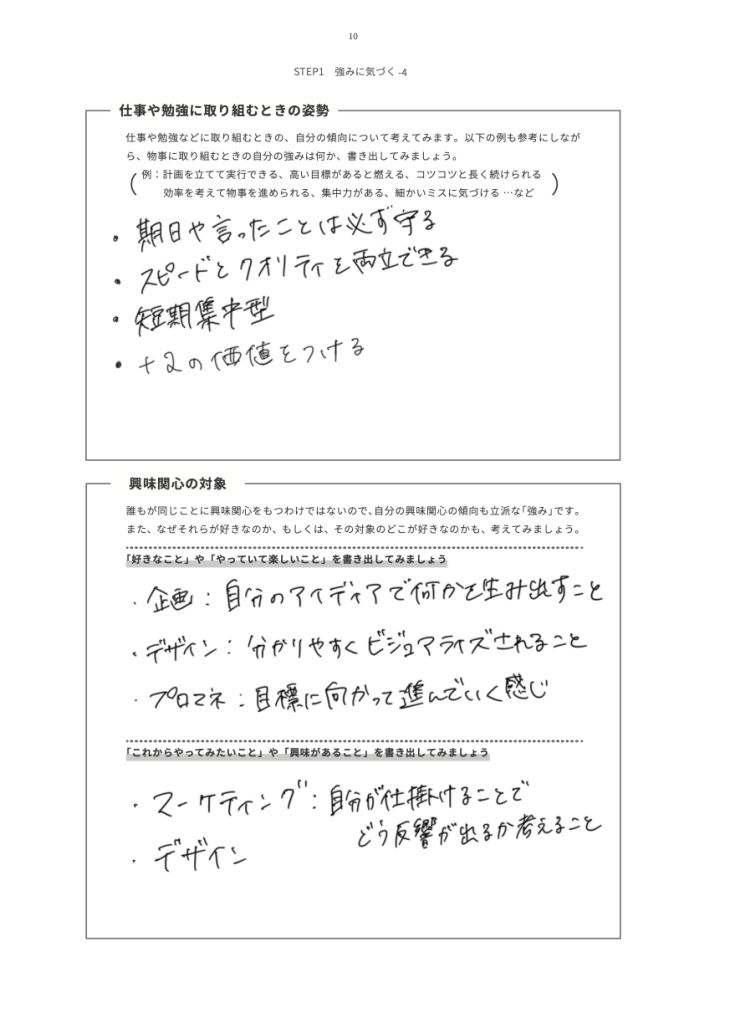 10
STEP1 強みに気づく -4
仕事や勉強に取り組むときの姿勢
仕事や勉強などに取り組むときの、自分の傾向について考えてみます。以下の例も参考にしなが
ら、物事に取り組むときの自分の強みは何か、書き出してみましょう。
(例：計画を立てて実行できる、高い目標があると燃える、コツコツと長く続けられる
効率を考えて物事を進められる、集中力がある、細かいミスに気づける …など)
・期日や言ったことは必ず守る
・スピードとクオリティを両立できる
・短期集中型
・+2の価値をつける
興味関心の対象
誰もが同じことに興味関心をもつわけではないので、自分の興味関心の傾向も立派な「強み」です。
また、なぜそれらが好きなのか、もしくは、その対象のどこが好きなのかも、考えてみましょう。
「好きなこと」や「やっていて楽しいこと」を書き出してみましょう
・企画：自分のアイディアで何かを生み出すこと
・デザイン：分かりやすくビジュアライズされること
・プロマネ：目標に向かって進んでいく感じ
「これからやってみたいこと」や「興味があること」を書き出してみましょう
・マーケティング：自分が仕掛けることで
どう反響が出るか考えること
・デザイン